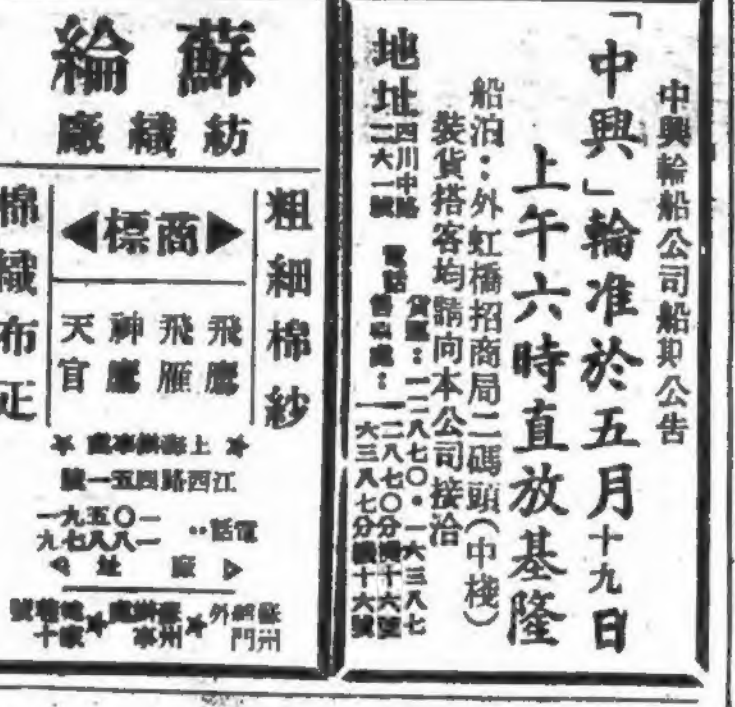 中興輪船公司船期公告
「中興」輪准於五月十九日
上午六時直放基隆
船泊：外虹橋招商局二碼頭（中棧）
裝貨搭客均請向本公司接洽
地址
四川中路
二六一號
電話
貨運：一二八七〇・一六三八七
售票處：一二八七〇分機十六號
一六三八七分機十六號
蘇綸
紡織廠
粗細棉紗
商標
飛鷹
飛雁
神鷹
天官
棉織布正
上海辦事處
江西路四五一號
電話：
一〇五九一
一八八七九
廠址
蘇州
盤門
外
蘇州
辦事處